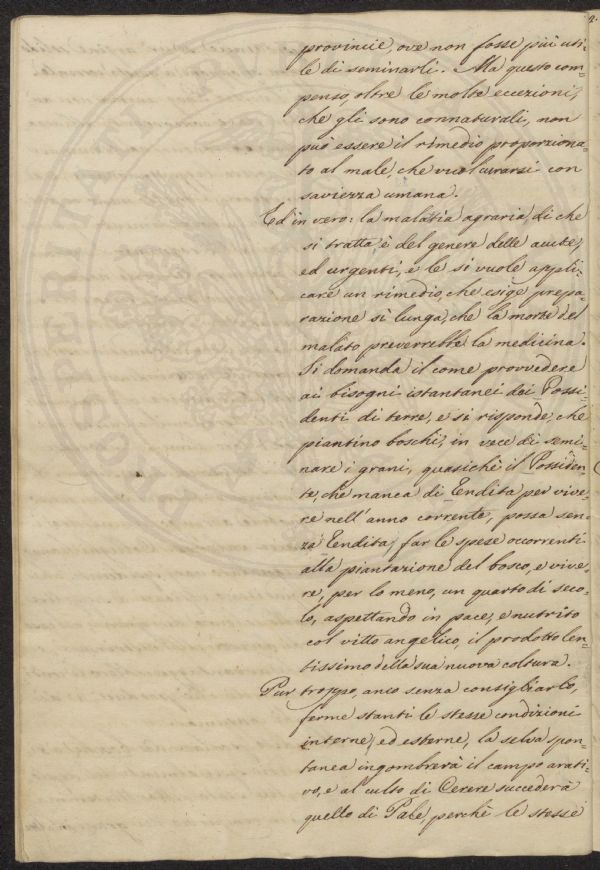 provincie, ove non fosse più uti=
le di seminarli. Ma questo com=
penso, oltre le molte eccezioni,
che gli sono connaturali, non
può essere il rimedio proporziona=
to al male, che vuol curarsi con
saviezza umana.
Ed in vero: la malattia agraria, di che
si tratta è del genere delle acute,
ed urgenti, e le si vuole appli=
care un rimedio, che esige prepa=
razione sì lunga, che la morte del
malato preverrebbe la medicina.
Si domanda il come provvedere
ai bisogni istantanei dei Possi=
denti di terre, e si risponde, che
piantino boschi, in vece di semi=
nare i grani, quasichè il Possiden=
te, che manca di Rendita per vive=
re nell'anno corrente, possa sen=
za Rendita, far le spese occorrenti
alla piantazione del bosco, e vive=
re, per lo meno, un quarto di seco=
lo, aspettando in pace, e nutrito
col vitto angelico, il prodotto len=
tissimo della sua nuova coltura.
Pur troppo, anco senza consigliarlo,
ferme stanti le stesse condizioni
interne, ed esterne, la selva spon=
tanea ingombrerà il campo arati=
vo, e al culto di Cerere succederà
quello di Pale, perchè le stesse
PROSPERITATI PUB